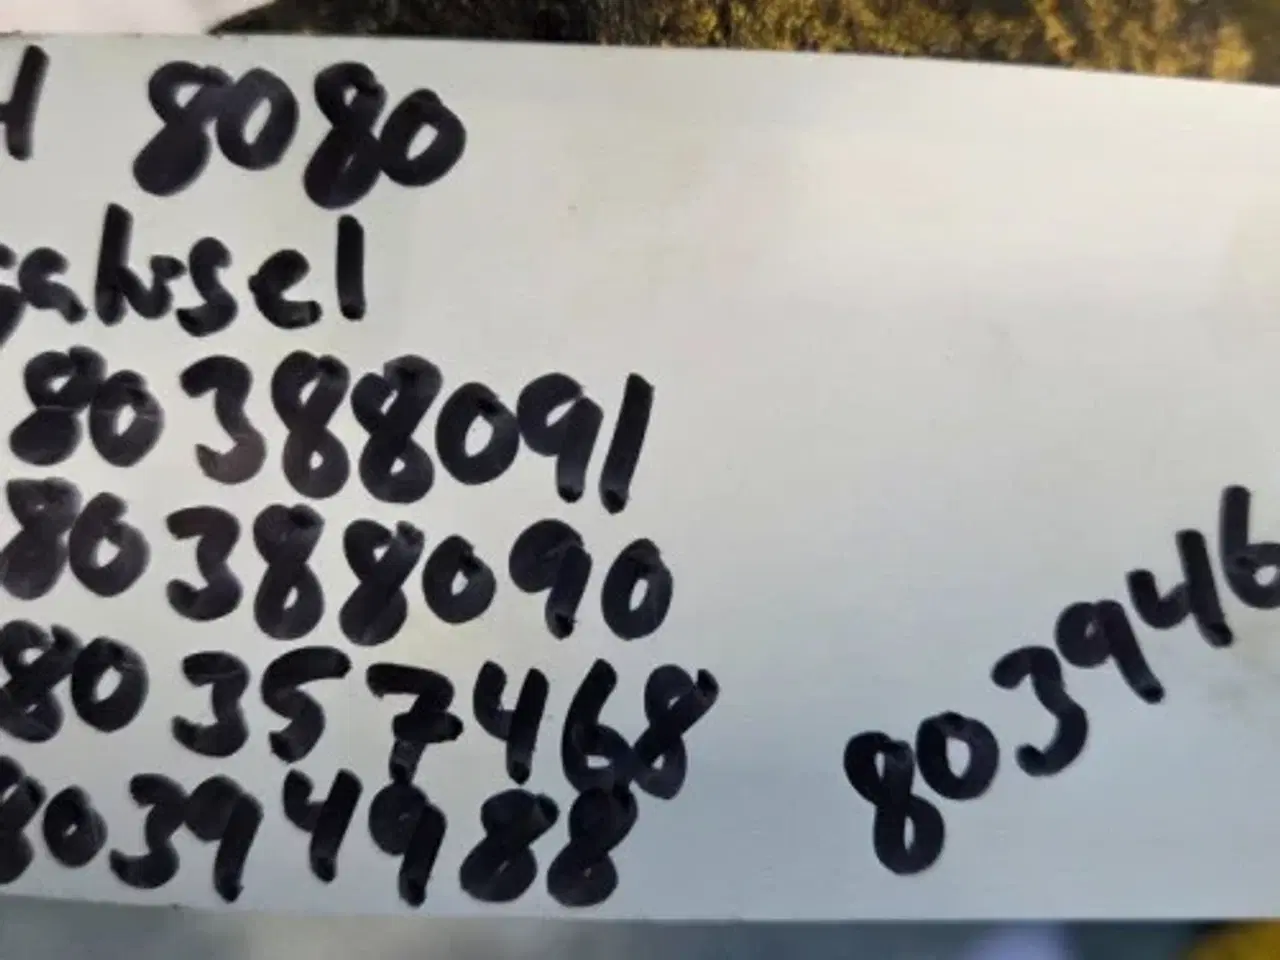 H 8080
80388091
80388090
80357468
80394988
803946